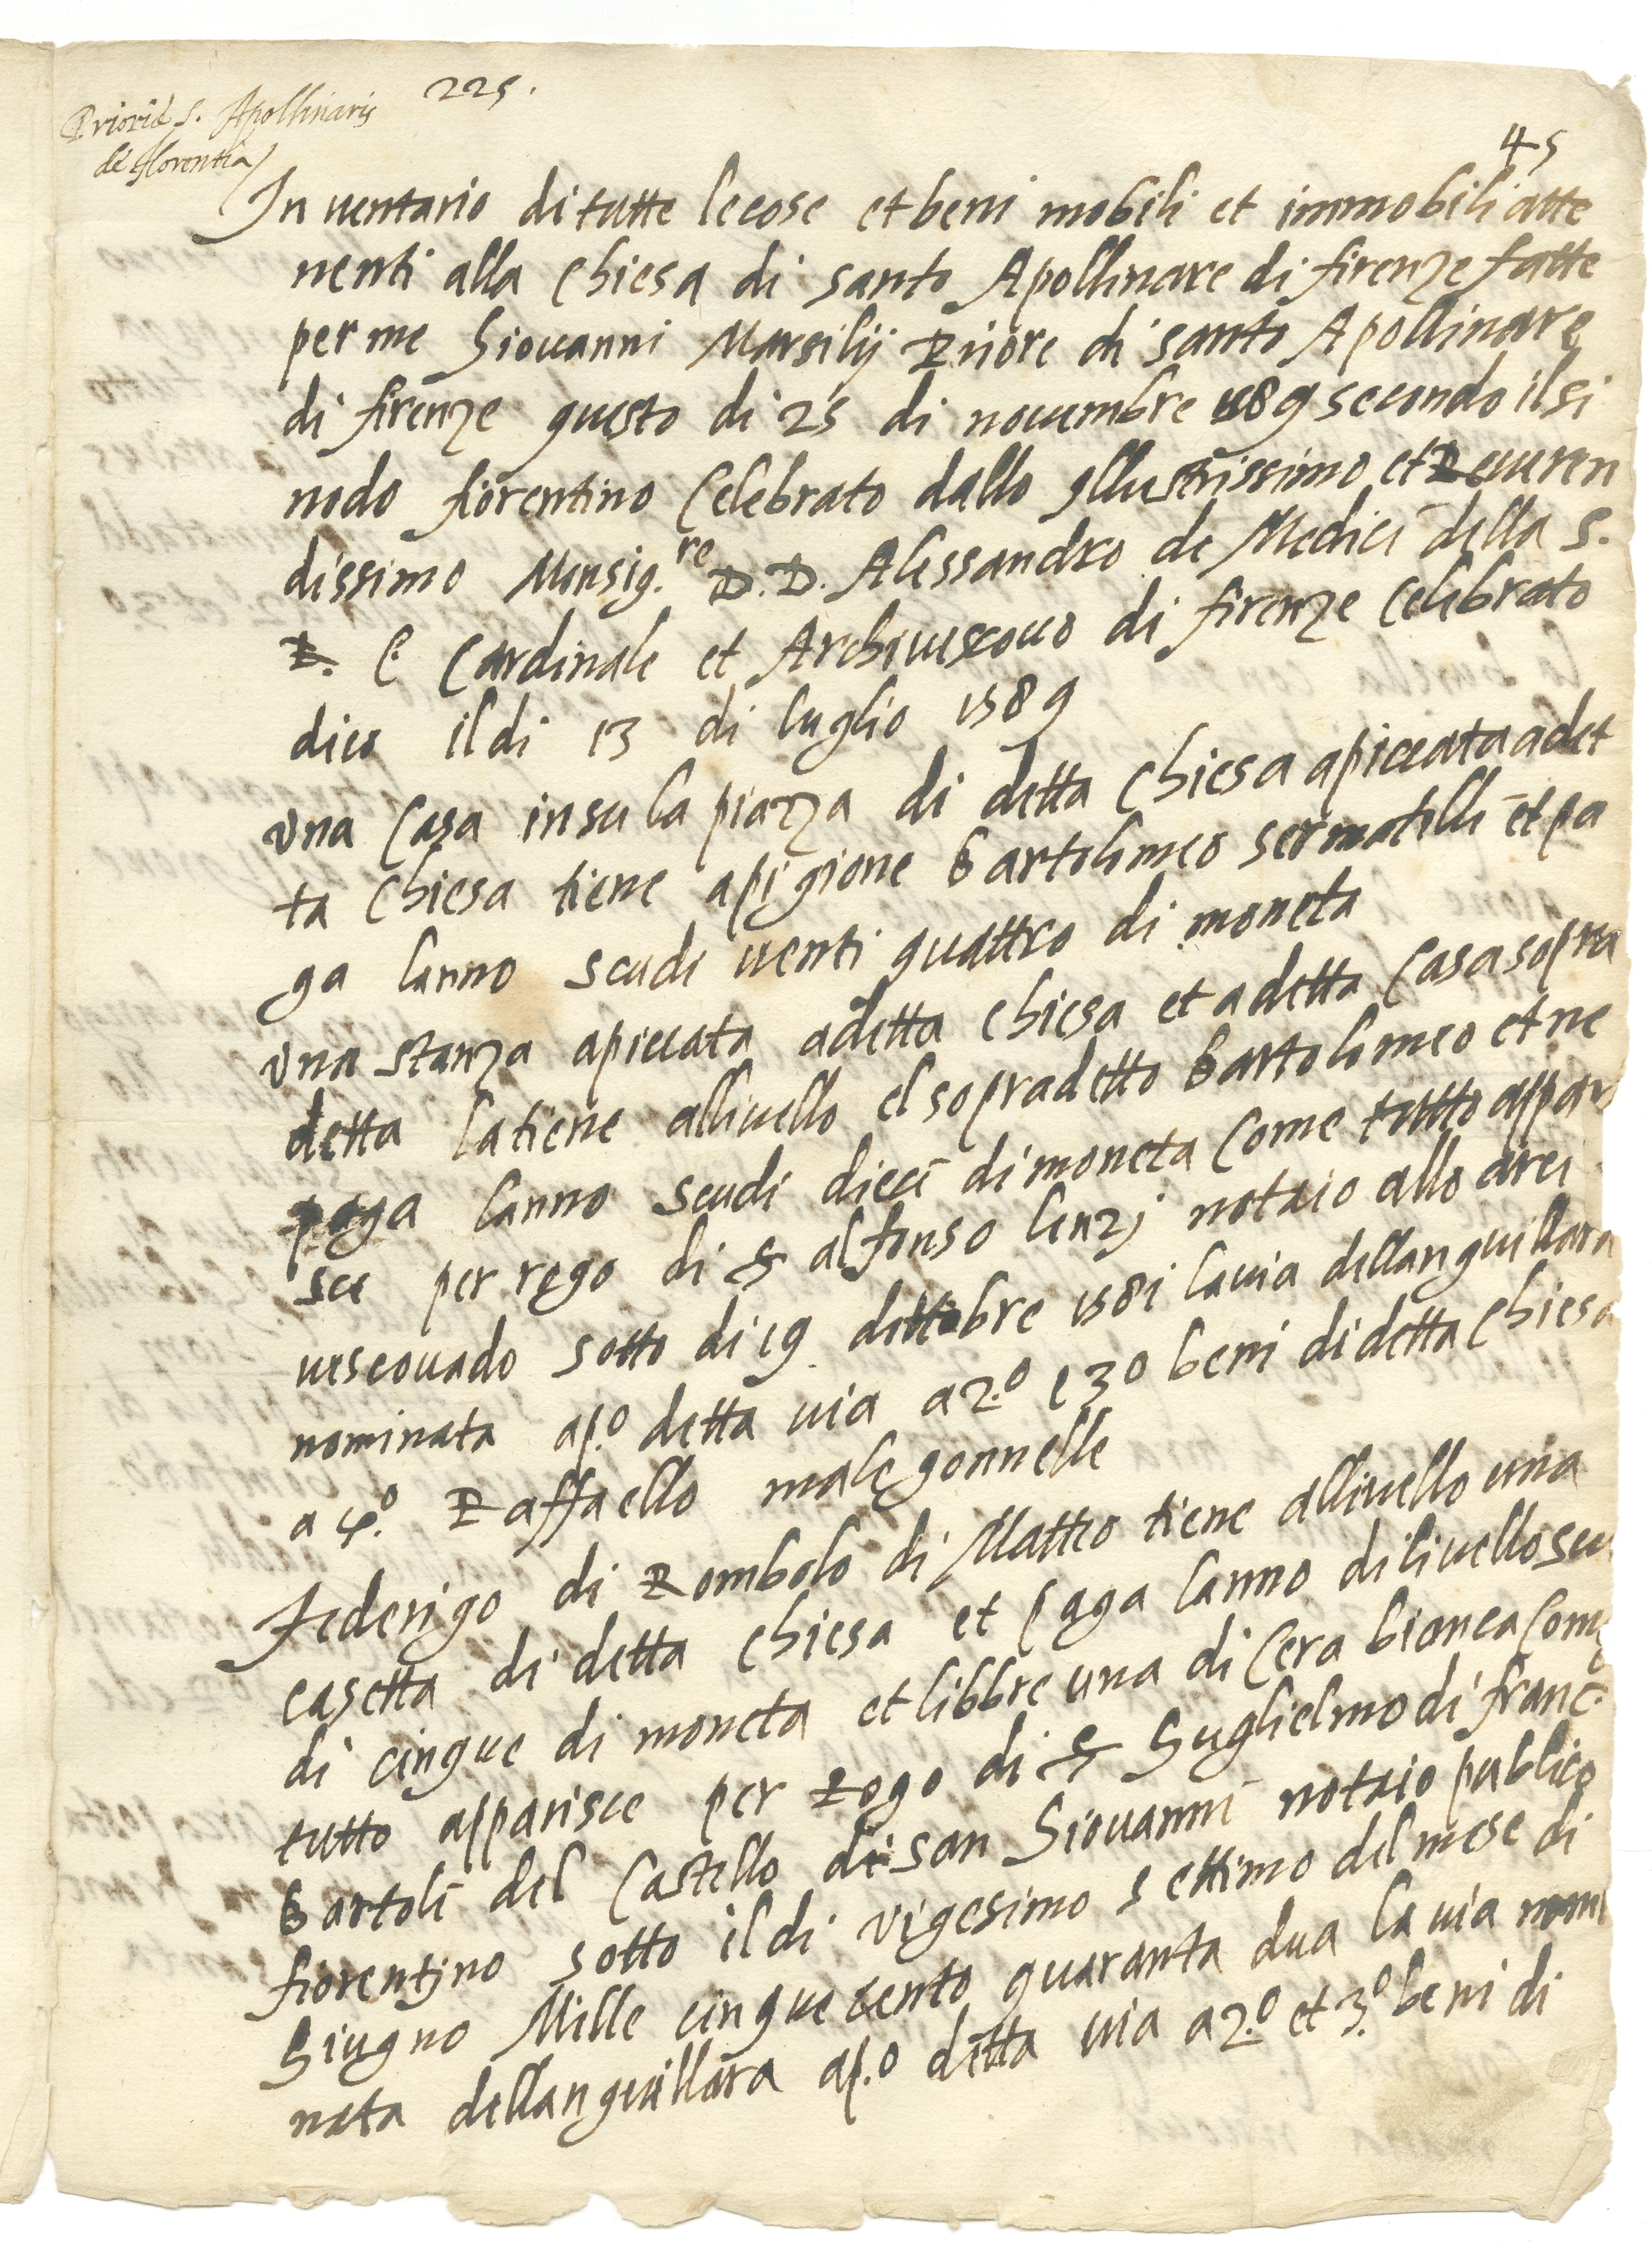 Prioriæ S. Apollinaris 225.
de Florentia
45
Inventario di tutte le cose et beni mobili et immobili atte
nenti alla Chiesa di santo Apollinare di firenze fatte
per me Giovanni Marsilij Priore di santo Apollinare
di firenze questo di 25 di novembre 1589 secondo il si
nodo fiorentino Celebrato dallo Illustrissimo et Reveren
dissimo Monsig.re D. D. Alessandro de Medici della S.
R. C. Cardinale et Archivescovo di firenze Celebrato
dico il di 13 di luglio 1589
Una Casa in su la piazza di detta Chiesa apiccata a det
ta Chiesa tiene a pigione Bartolimeo sermatelli et pa
ga lanno scudi venti quattro di moneta
Una stanza apiccata a detta Chiesa et a detta Casa sopra
detta la tiene allivello el sopradetto Bartolomeo et ne
paga lanno scudi dieci di moneta Come tutto appari
sce per rogo di s alfonso lenzj notaio allo arci
vescovado sotto di 19 dottobre 1581 la via dellanguillara
nominata a p.o detta via a 2.o e 3o beni di detta Chiesa
a 4.o Raffaello malegonnelle
Federigo di Rombolo di Matteo tiene allivello una
casetta di detta Chiesa et paga lanno di livello scu
di cinque di moneta et libbre una di Cera bianca Come
tutto apparisce per rogo di s Guglielmo di franc.
Bartoli del Castello di san Giovanni notaio publico
fiorentino sotto il di vigesimo settimo del mese di
Giugno Mille cinque cento quaranta dua la via nomi
nata dellanguillara a p.o detta via a 2.o et 3.o beni di